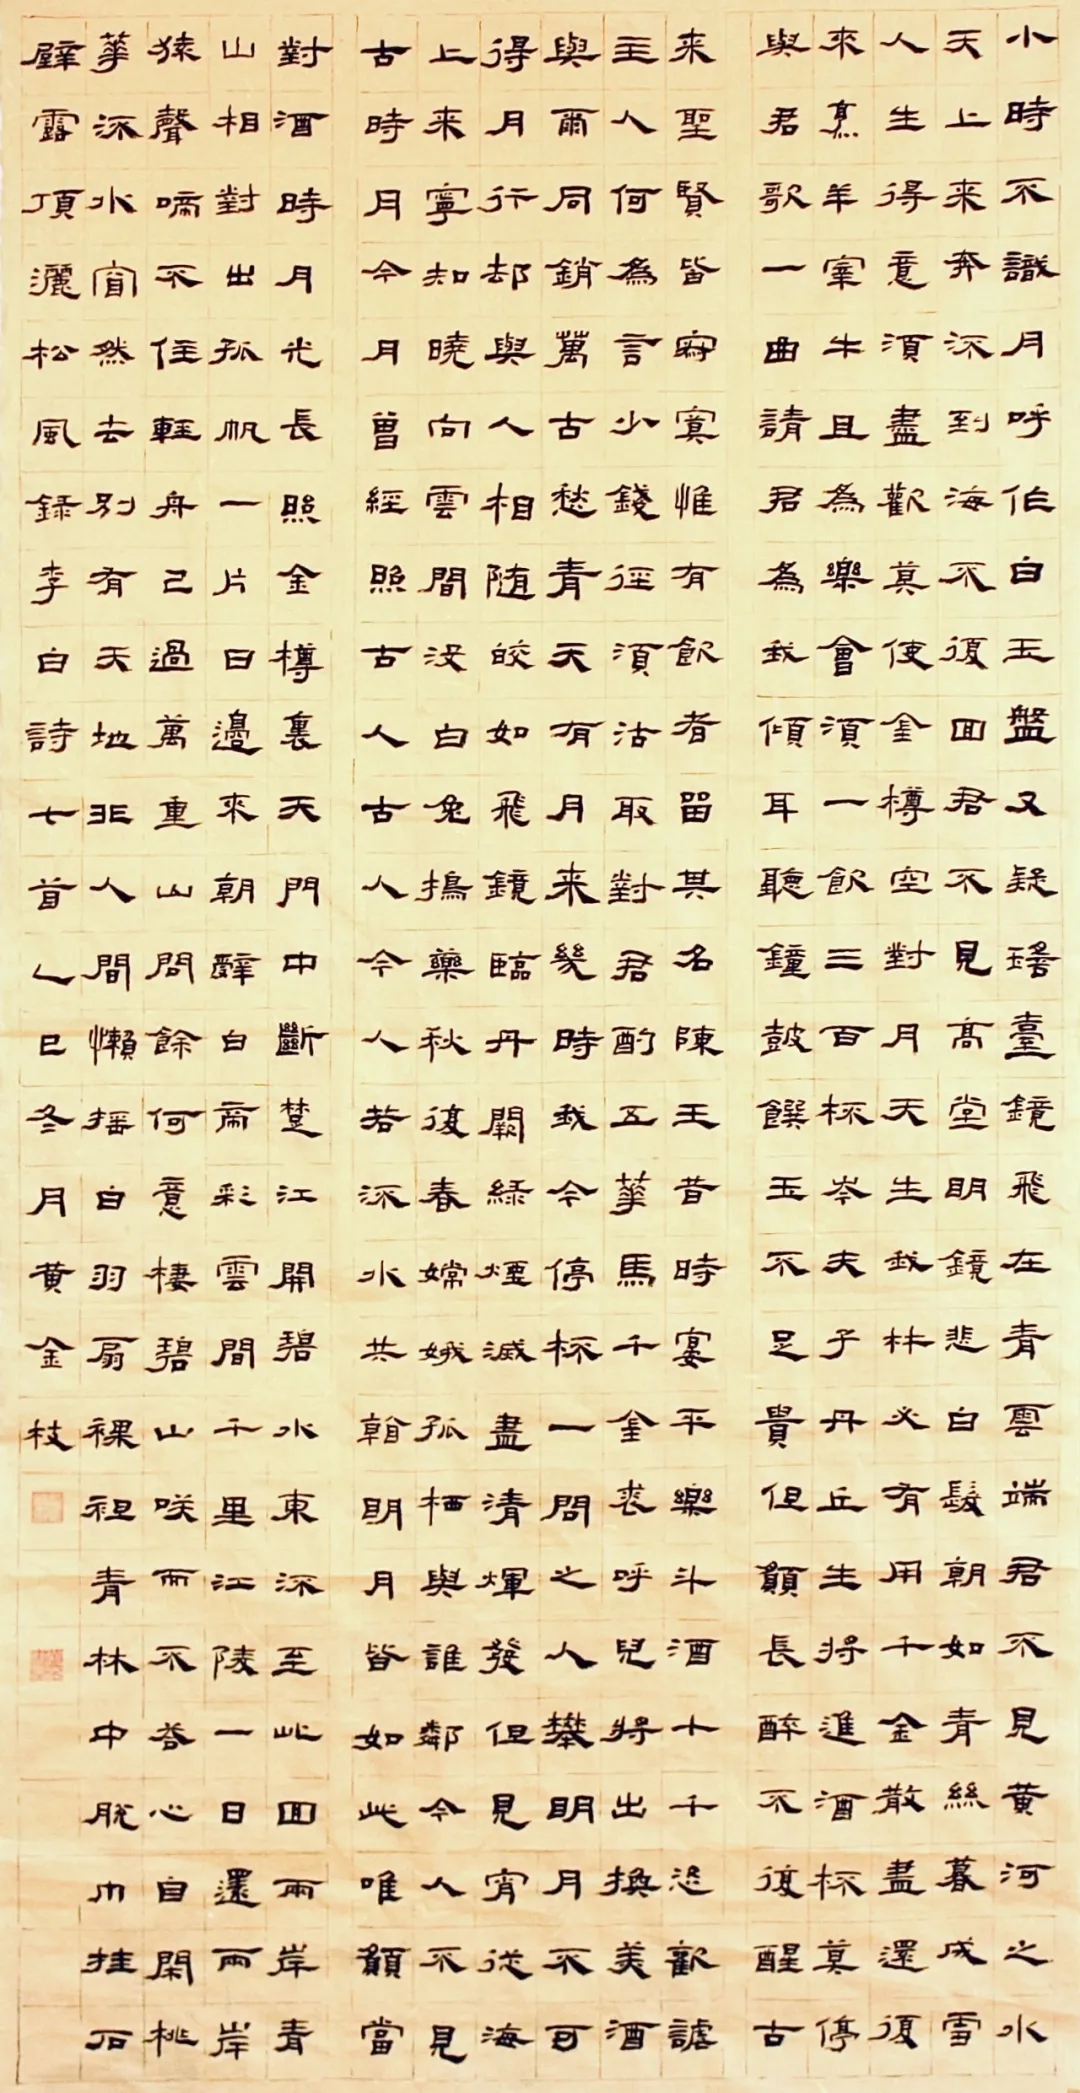 小時不識月呼作白玉盤又疑瑤臺鏡飛在青雲端君不見黃河之水
天上來奔流到海不復回君不見高堂明鏡悲白髮朝如青絲暮成雪
人生得意須盡歡莫使金樽空對月天生我材必有用千金散盡還復
來烹羊宰牛且為樂會須一飲三百杯岑夫子丹丘生將進酒杯莫停
與君歌一曲請君為我傾耳聽鐘鼓饌玉不足貴但願長醉不復醒古
来聖賢皆寂寞惟有飲者留其名陳王昔時宴平樂斗酒十千恣歡謔
主人何為言少錢徑須沽取對君酌五華馬千金裘呼兒將出換美酒
與爾同銷萬古愁青天有月来幾時我今停杯一問之人攀明月不可
得月行却與人相随皎如飛鏡臨丹闕綠煙滅盡清輝發但見宵從海
上来寧知曉向雲間沒白兔搗藥秋復春嫦娥孤栖與誰鄰今人不見
古時月今月曾經照古人古人今人若流水共看明月皆如此唯願當
對酒時月光長照金樽裏天門中斷楚江開碧水東流至此回兩岸青
山相對出孤帆一片日邊來朝辭白帝彩雲間千里江陵一日還兩岸
猿聲啼不住輕舟已過萬重山問餘何意棲碧山咲而不答心自閑桃
華流水窅然去別有天地非人間懶搖白羽扇裸袒青林中脫巾挂石
壁露頂灑松風錄李白詩七首乙巳冬月黃金枝